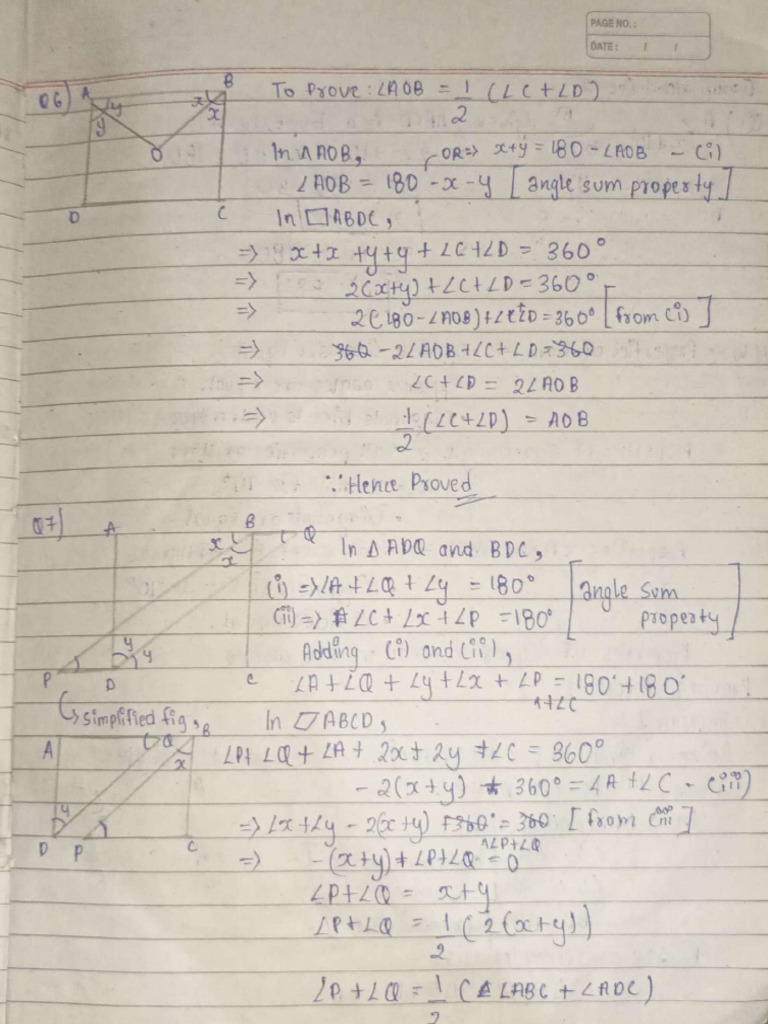 PAGE NO.:
DATE: / /
Q6) A B To Prove: ∠AOB = 1/2 (∠C+∠D)
y x
y x
O In △AOB, OR=> x+y = 180 - ∠AOB - (i)
∠AOB = 180 - x - y [angle sum property]
D C In □ABDC,
=> x+x +y+y + ∠C+∠D = 360°
=> 2(x+y) + ∠C+∠D = 360°
=> 2(180-∠AOB)+∠C+∠D=360° [from (i)]
=> 360 - 2∠AOB+∠C+∠D=360
=> ∠C+∠D = 2∠AOB
=> 1/2 (∠C+∠D) = AOB
∵ Hence Proved
Q7) A B Q In △ADQ and BDC,
x
x
(i) => ∠A+∠Q + ∠y = 180° [angle sum
(ii) => ∠C+ ∠x + ∠P = 180° property]
y y Adding (i) and (ii),
P D C ∠A+∠Q + ∠y+∠x + ∠P = 180°+180°
+∠C
↳ simplified fig. In ▱ABCD,
A Q B ∠P+ ∠Q + ∠A + 2x+ 2y +∠C = 360°
x
- 2(x+y) + 360° = ∠A+∠C - (iii)
y => ∠x+∠y - 2(x+y) +360° = 360 [from (iii)]
+∠P+∠Q
D P C => -(x+y)+∠P+∠Q = 0
∠P+∠Q = x+y
∠P+∠Q = 1/2 (2(x+y))
∠P+∠Q = 1/2 (∠ABC + ∠ADC)